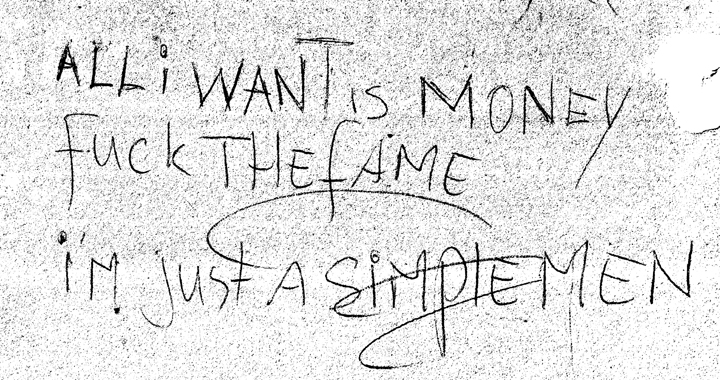 ALL i WANT is MONEY
fuck THE fAME
i'M just A SiMPlE MEN